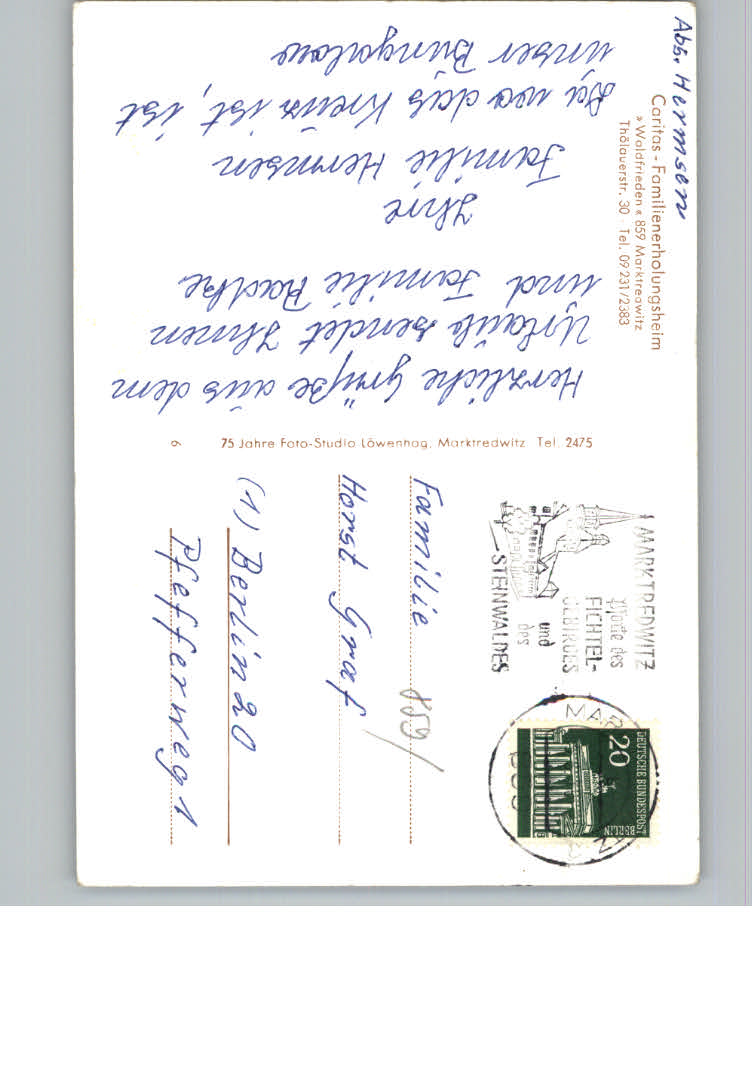 Abs. Hermsen
Caritas - Familienerholungsheim
» Waldfrieden « 859 Marktredwitz
Thölauerstr. 30 · Tel. 09231/2383
Herzliche Grüße aus dem
Urlaub sendet Ihnen
und Familie Radtke
Ihre
Familie Hermsen
Da wo das Kreuz ist, ist
unser Bungalow
75 Jahre Foto-Studio Löwenhag, Marktredwitz. Tel. 2475
9
MARKTREDWITZ
Pforte des
FICHTEL-
GEBIRGES
und
des
STEINWALDES
DEUTSCHE BUNDESPOST
20
BERLIN
859/
Familie
Horst Graf
(1) Berlin 20
Pfefferweg 1